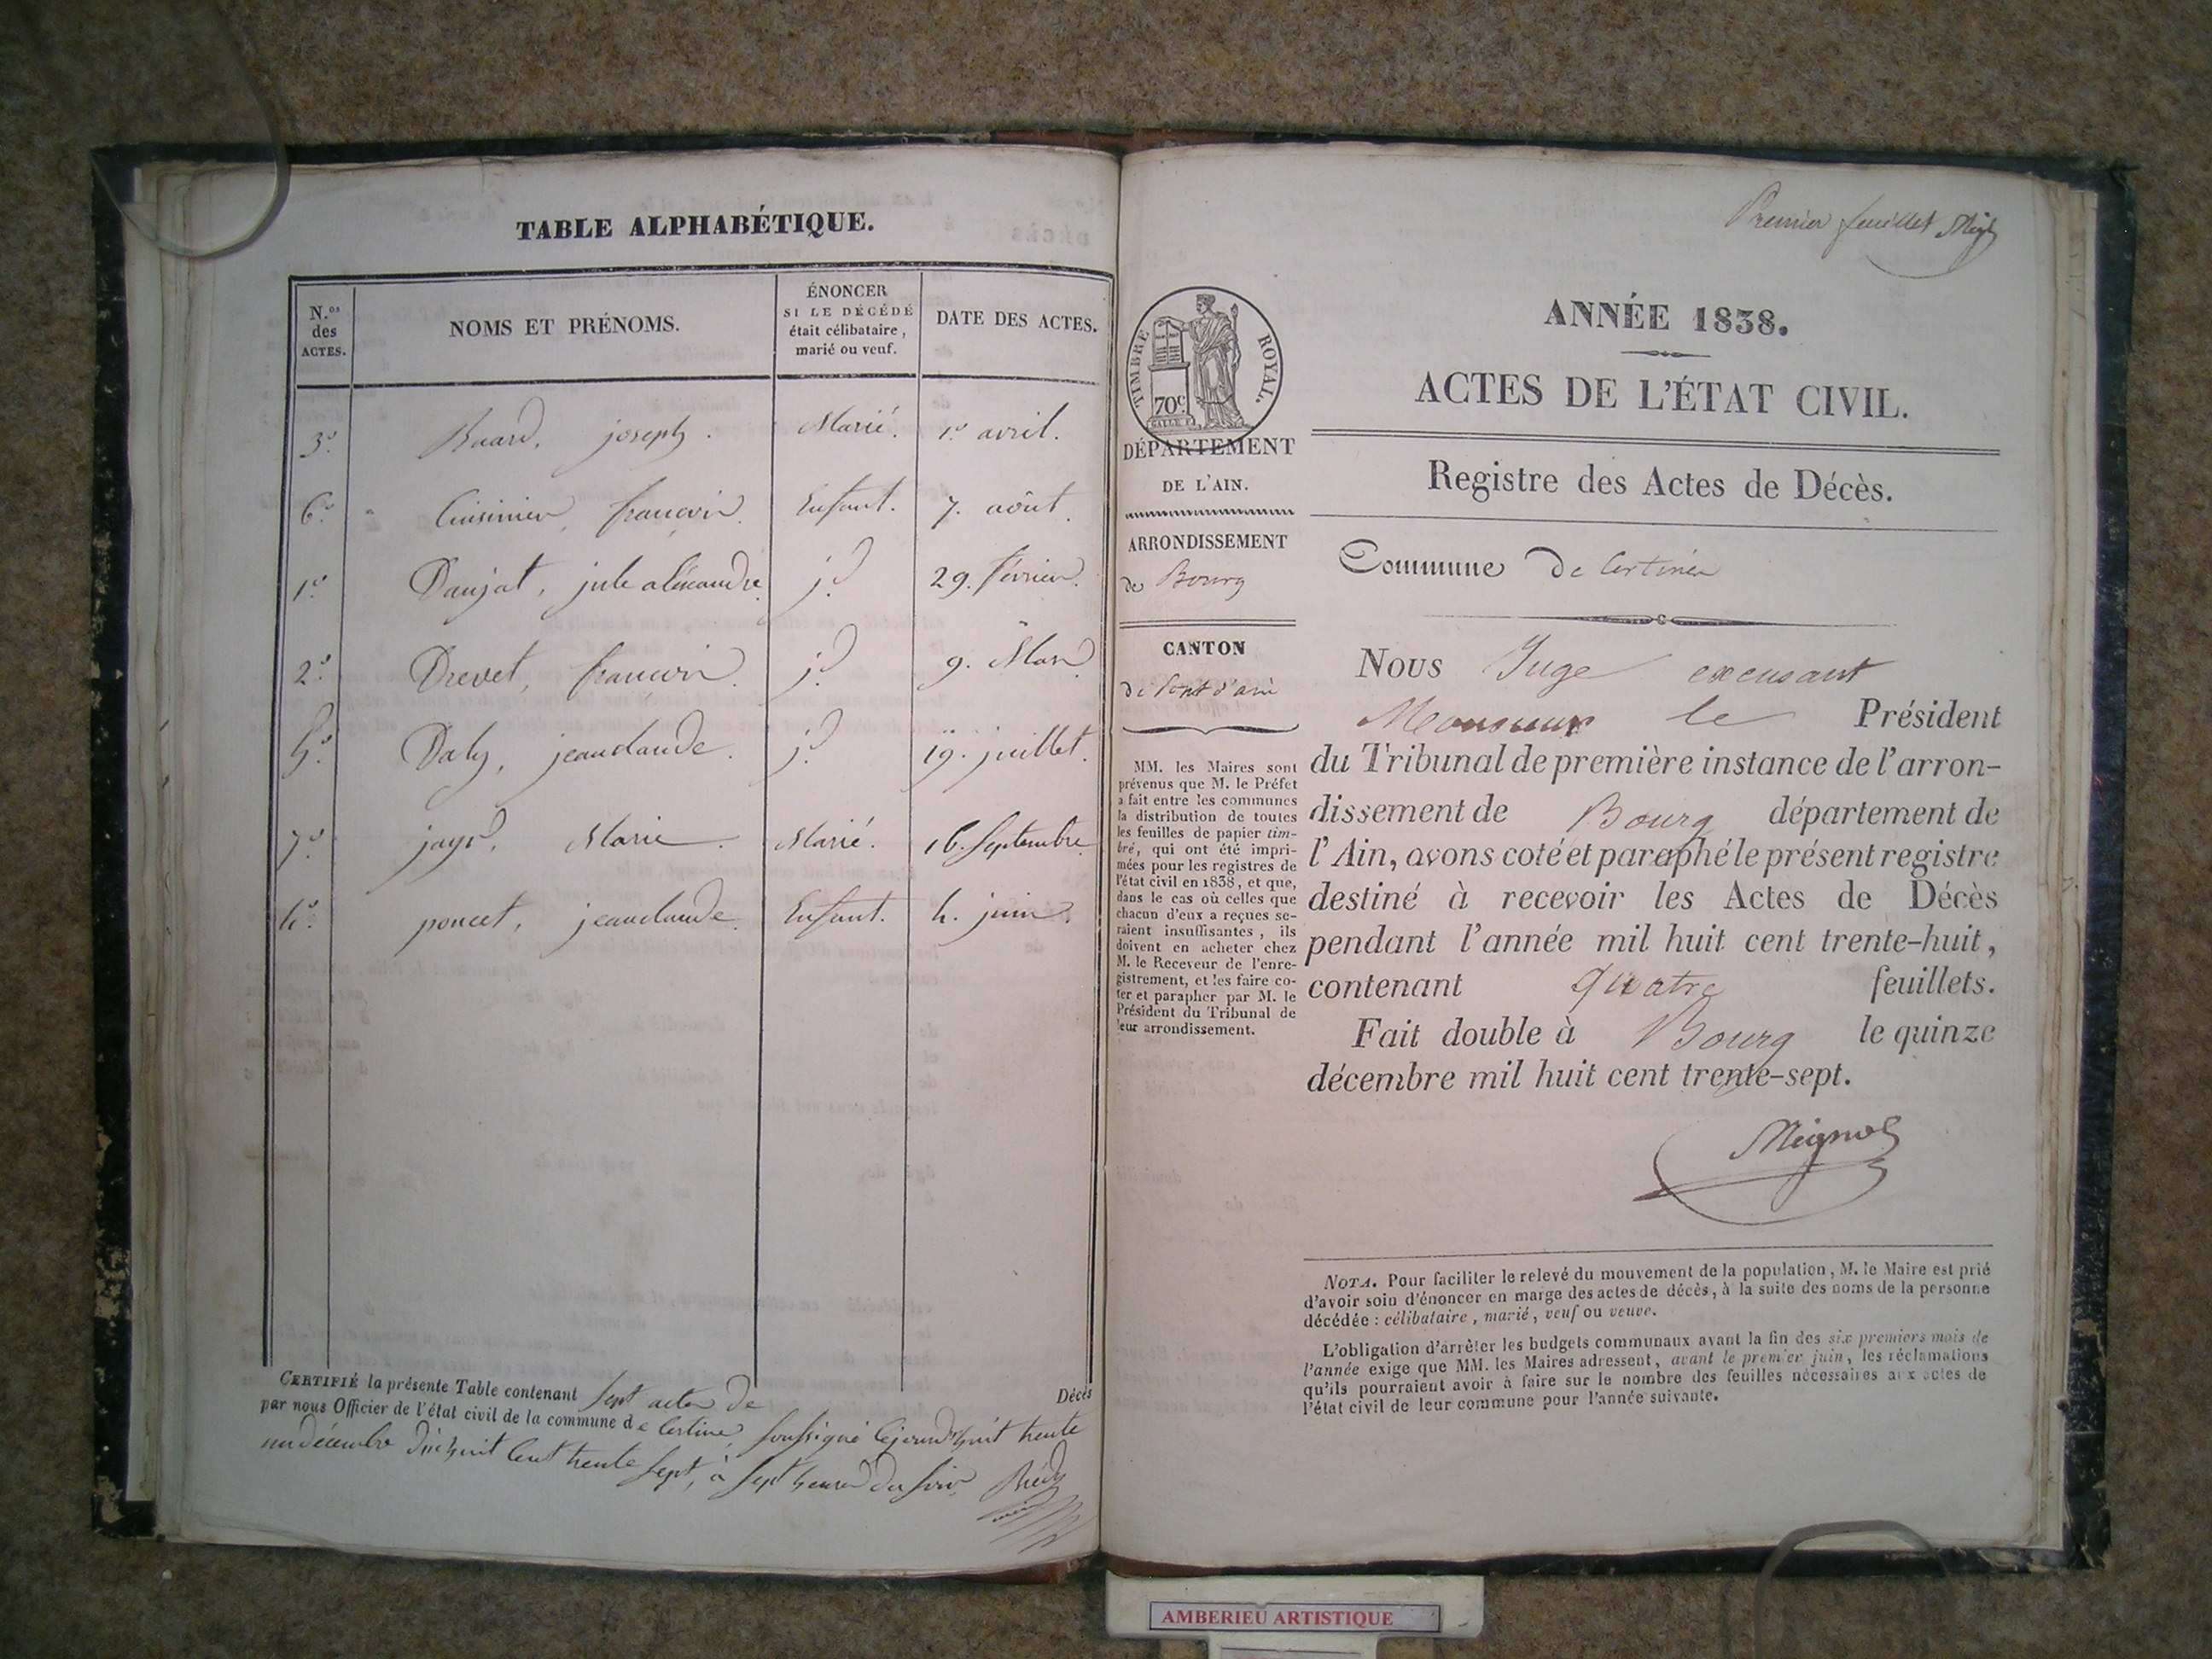 TABLE ALPHABÉTIQUE.
N.os des ACTES.
NOMS ET PRÉNOMS.
ÉNONCER
SI LE DÉCÉDÉ
était célibataire,
marié ou veuf.
DATE DES ACTES.
3e joseph. Marié. 1er avril.
6e Cuisinier, francois. Enfant. 7. août.
1e Daujat, jule aléxandre. id 29. février.
2e Drevet, francois. id 9. Mars
5e Daly, jeanclaude. id 19. juillet.
7e jayr, Marie. Marié. 16. Septembre
4e poncet, jeanclaude. Enfant. 4. juin.
CERTIFIÉ la présente Table contenant sept actes de Décès
par nous Officier de l'état civil de la commune de Certines, soussigné cejourd'huit trente
un décembre dix huit cent trente sept, à sept heures du soir
Premier feuillet
TIMBRE ROYAL.
70c
DÉPARTEMENT
DE L'AIN.
ARRONDISSEMENT
de Bourg
CANTON
de Pont d'ain
MM. les Maires sont
prévenus que M. le Préfet
a fait entre les communes
la distribution de toutes
les feuilles de papier tim-
bré, qui ont été impri-
mées pour les registres de
l'état civil en 1838, et que,
dans le cas où celles que
chacun d'eux a reçues se-
raient insuffisantes, ils
doivent en acheter chez
M. le Receveur de l'enre-
gistrement, et les faire co-
ter et parapher par M. le
Président du Tribunal de
leur arrondissement.
ANNÉE 1838.
ACTES DE L'ÉTAT CIVIL.
Registre des Actes de Décès.
Commune de Certines
Nous Juge excusant
Monsieur le Président
du Tribunal de première instance de l'arron-
dissement de Bourg département de
l'Ain, avons coté et paraphé le présent registre
destiné à recevoir les Actes de Décès
pendant l'année mil huit cent trente-huit,
contenant quatre feuillets.
Fait double à Bourg le quinze
décembre mil huit cent trente-sept.
NOTA. Pour faciliter le relevé du mouvement de la population, M. le Maire est prié
d'avoir soin d'énoncer en marge des actes de décès, à la suite des noms de la personne
décédée : célibataire, marié, veuf ou veuve.
L'obligation d'arrêter les budgets communaux avant la fin des six premiers mois de
l'année exige que MM. les Maires adressent, avant le premier juin, les réclamations
qu'ils pourraient avoir à faire sur le nombre des feuilles nécessaires aux actes de
l'état civil de leur commune pour l'année suivante.
AMBERIEU ARTISTIQUE